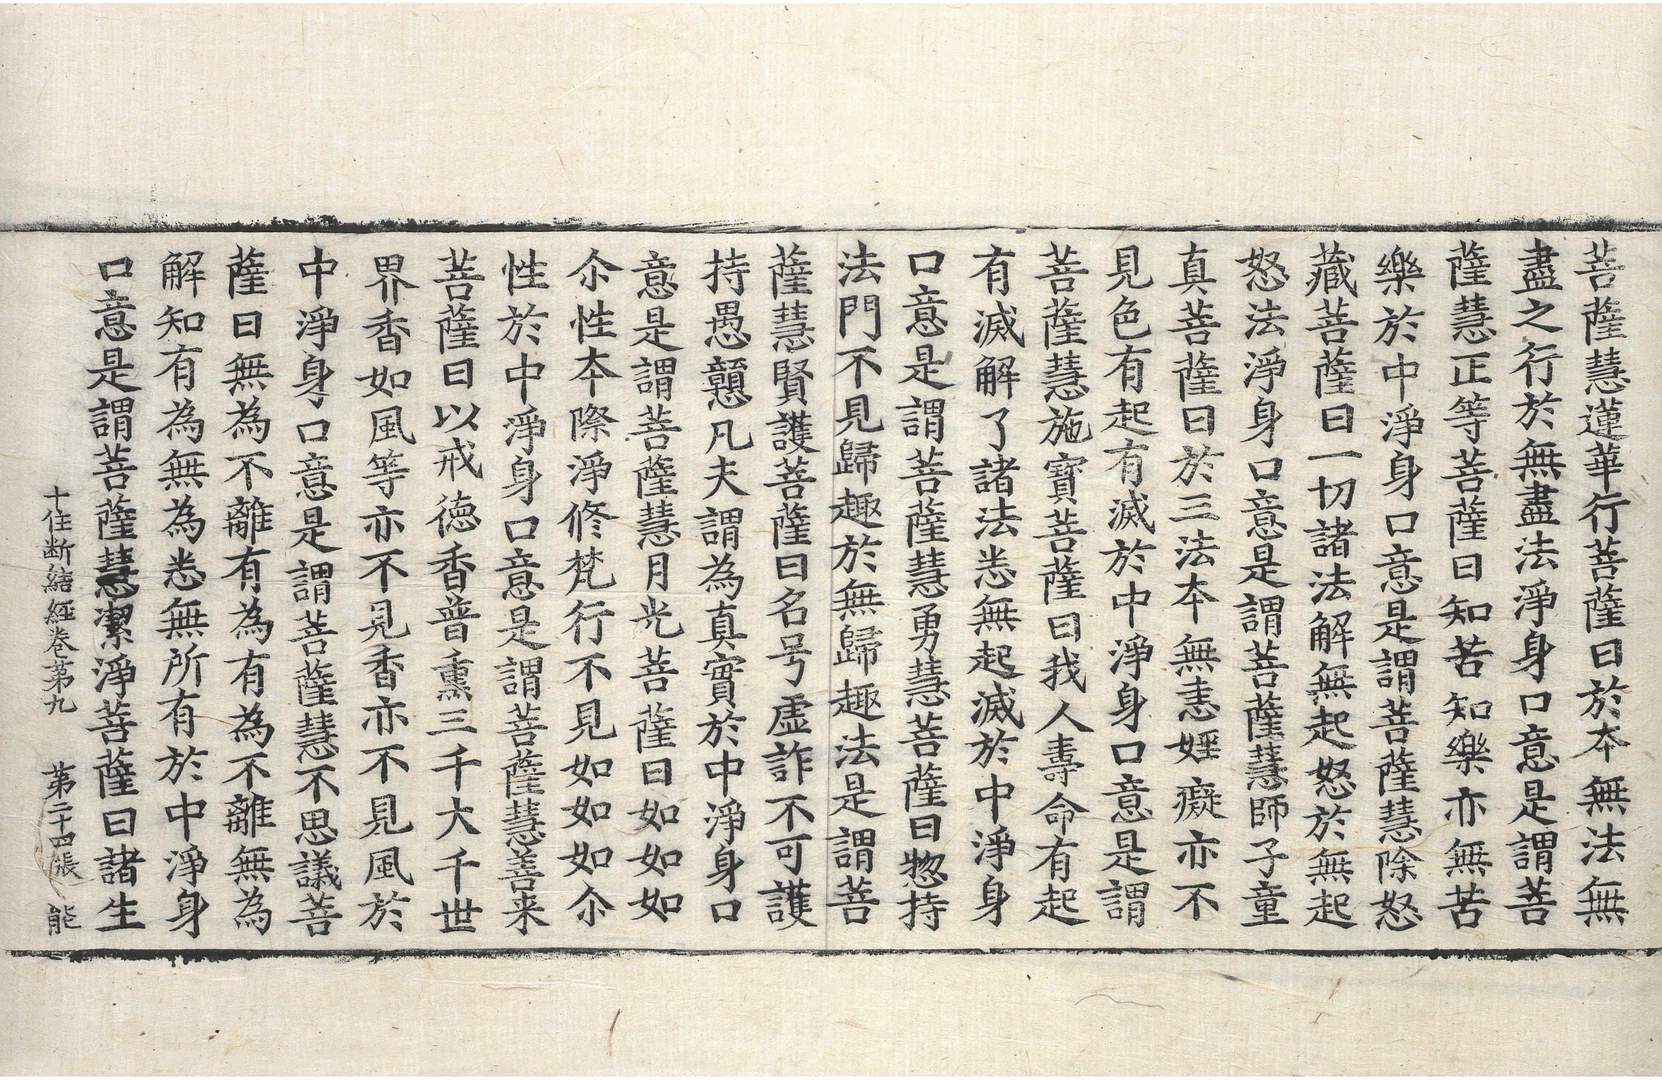 菩薩慧蓮華行菩薩曰於本無法無
盡之行於無盡法淨身口意是謂菩
薩慧正等菩薩曰知苦知樂亦無苦
樂於中淨身口意是謂菩薩慧除怒
藏菩薩曰一切諸法解無起怒於無起
怒法淨身口意是謂菩薩慧師子童
真菩薩曰於三法本無恚婬癡亦不
見色有起有滅於中淨身口意是謂
菩薩慧施寶菩薩曰我人壽命有起
有滅解了諸法悉無起滅於中淨身
口意是謂菩薩慧勇慧菩薩曰惣持
法門不見歸趣於無歸趣法是謂菩
薩慧賢護菩薩曰名号虛詐不可護
持愚戇凡夫謂為真實於中淨身口
意是謂菩薩慧月光菩薩曰如如如
尒性本際淨修梵行不見如如如尒
性於中淨身口意是謂菩薩慧善来
菩薩曰以戒德香普熏三千大千世
界香如風等亦不見香亦不見風於
中淨身口意是謂菩薩慧不思議菩
薩曰無為不離有為有為不離無為
解知有為無為悉無所有於中淨身
口意是謂菩薩慧潔淨菩薩曰諸生
十住断結經卷第九 第二十四張 能